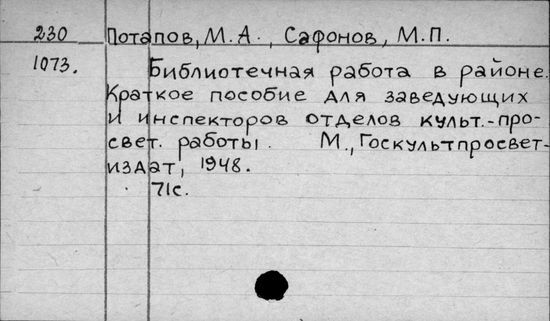 230 Потапов, М.А., Сафонов, М.П.
1073. Библиотечная работа в районе.
Краткое пособие для заведующих
и инспекторов отделов культ.-про-
свет. работы. М., Госкультпросвет-
издат, 1948.
71с.